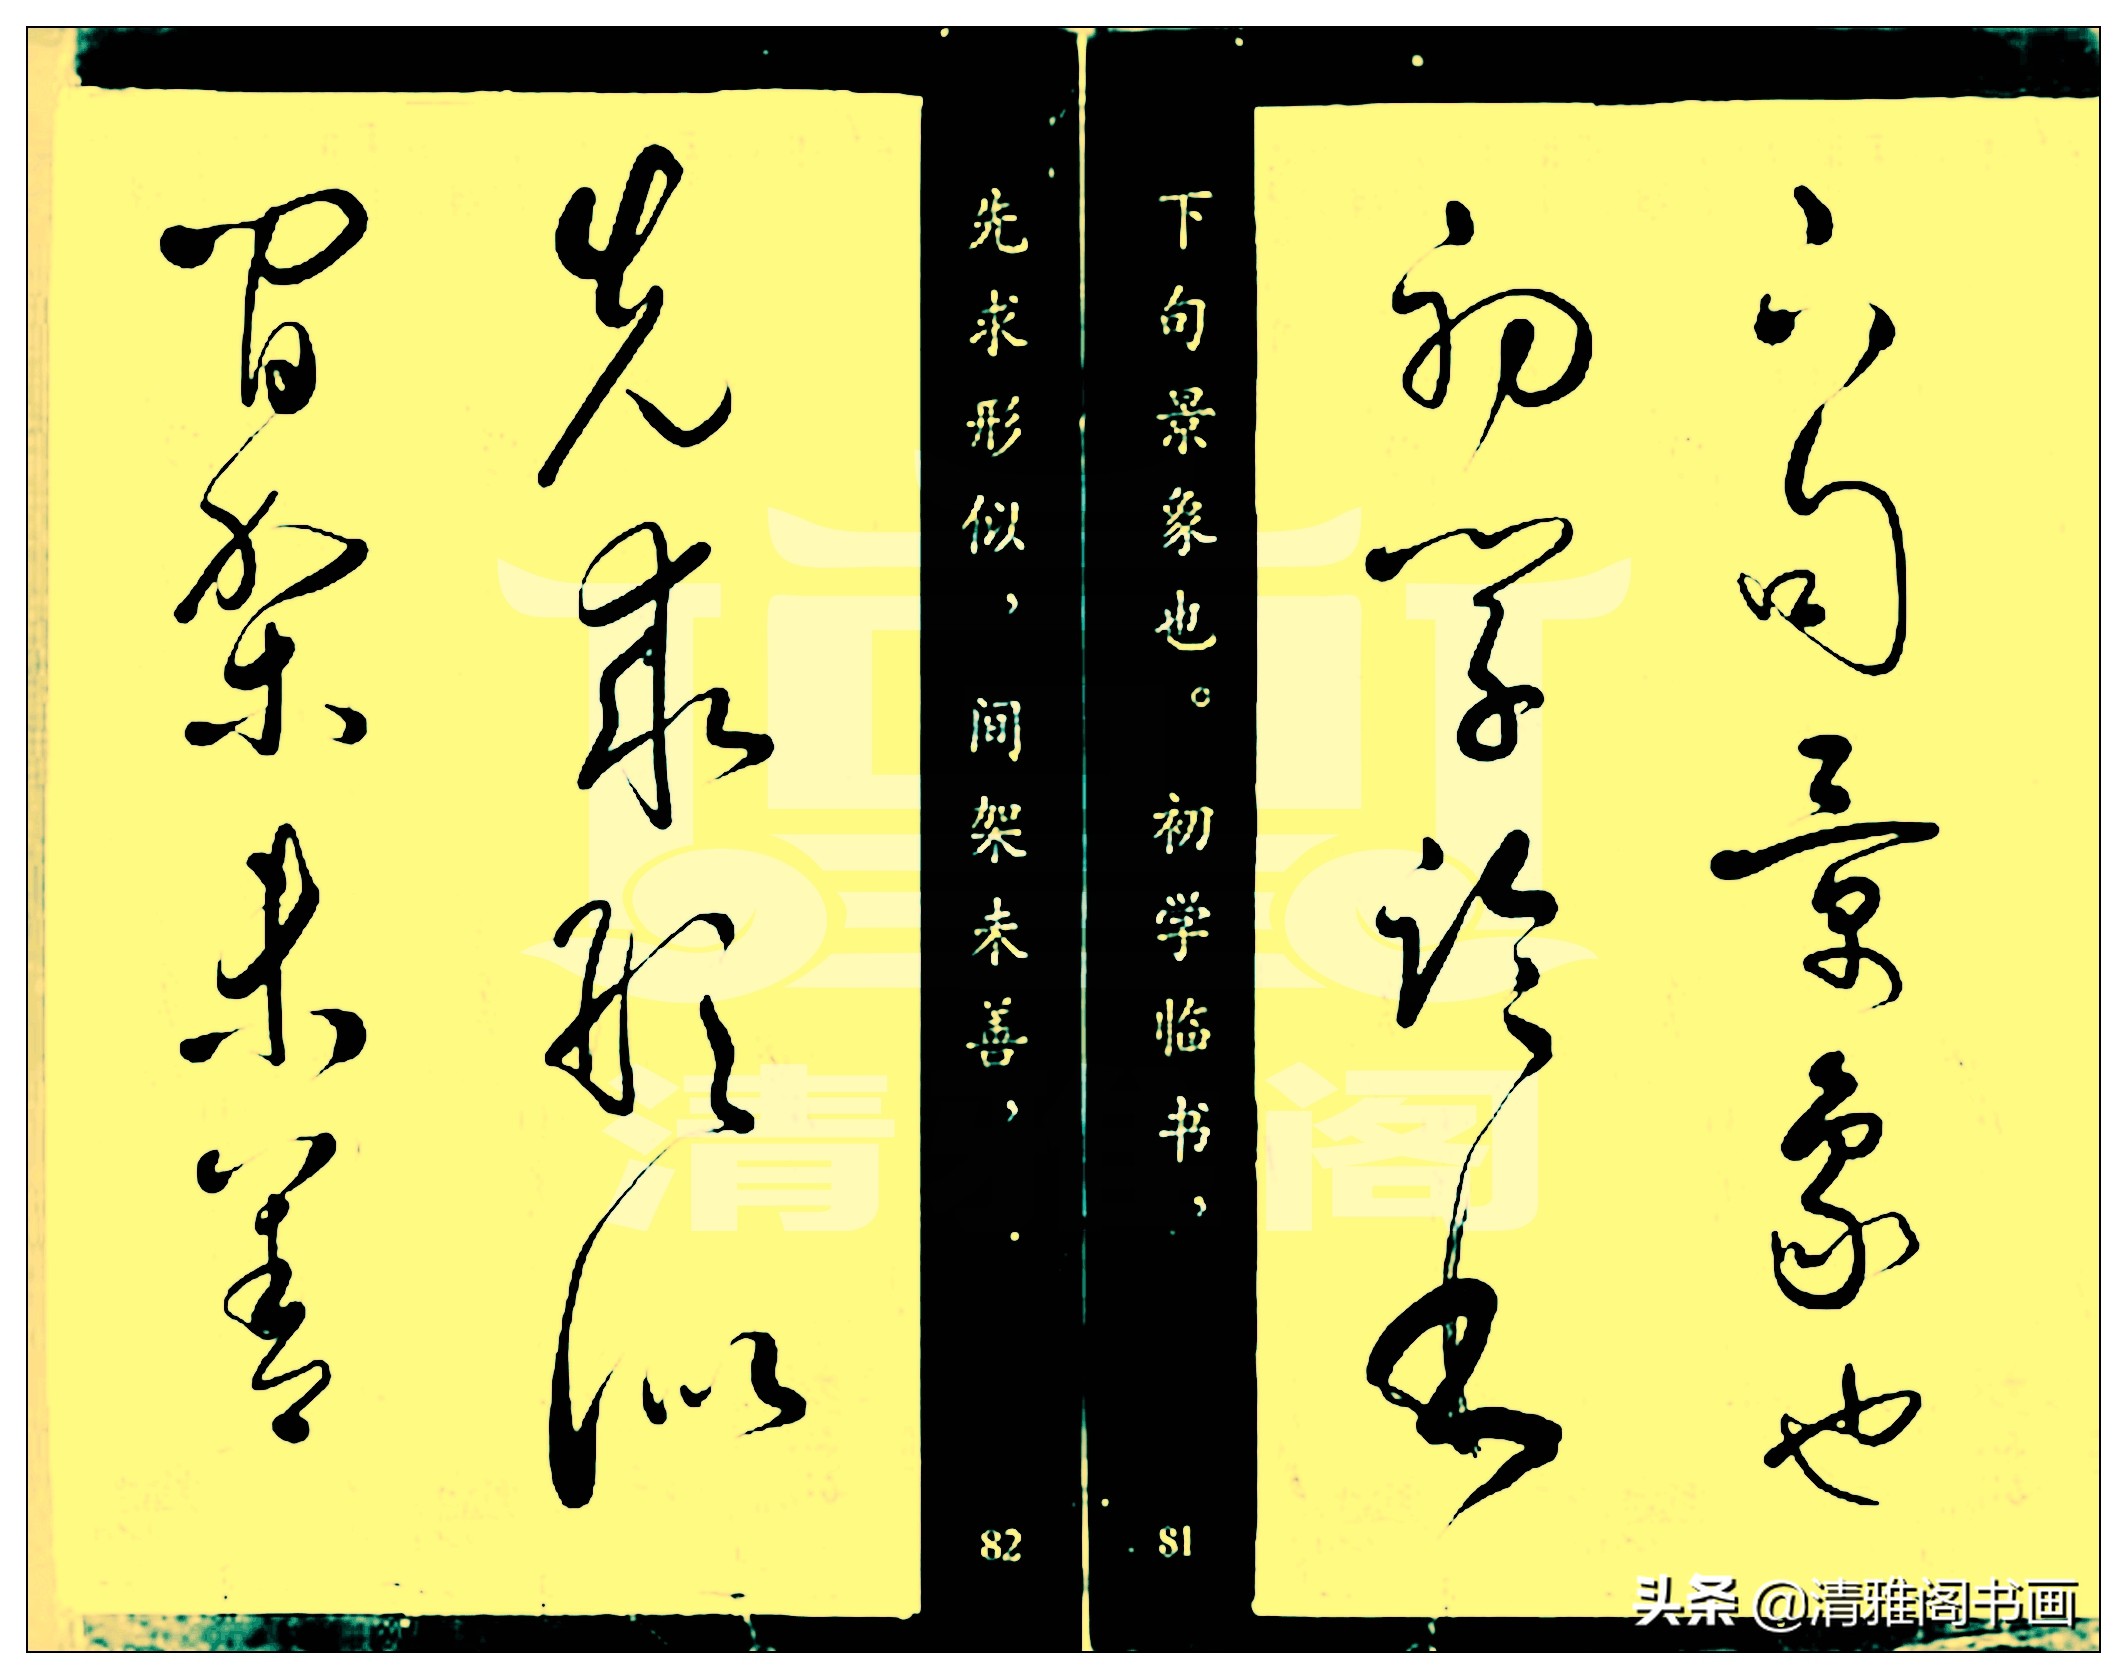 下句景象也
初学临书
下句景象也。初学临书，
81
先求形似，间架未善，
82
先求形似
间架未善
清 阁
头条 @清雅阁书画